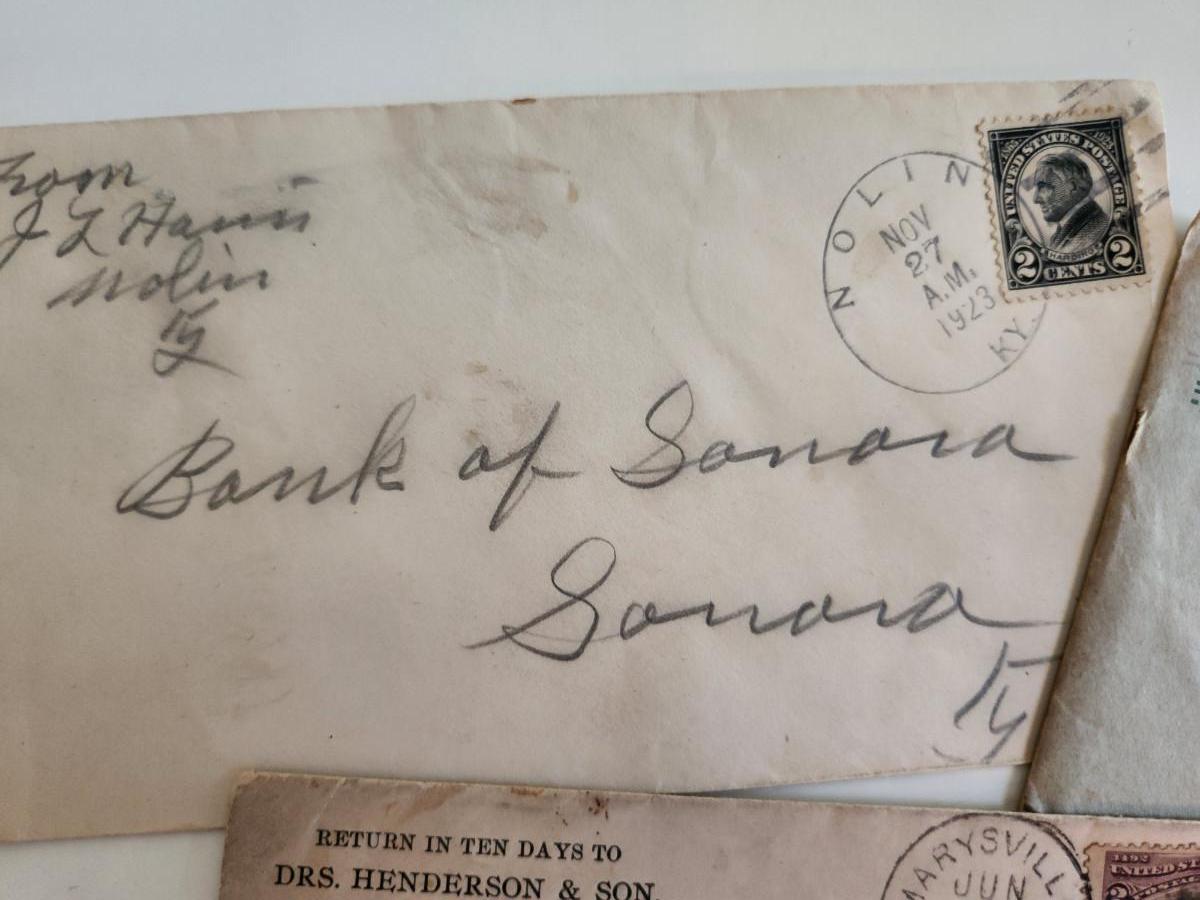 From
J L Harris
Nolin
Ky
NOLIN KY.
NOV
27
A.M.
1923
UNITED STATES POSTAGE
HARDING
2 CENTS 2
Bank of Sonora
Sonora
Ky
RETURN IN TEN DAYS TO
DRS. HENDERSON & SON,
MARYSVILL
JUN
1492
UNITED ST
POSTAG
2